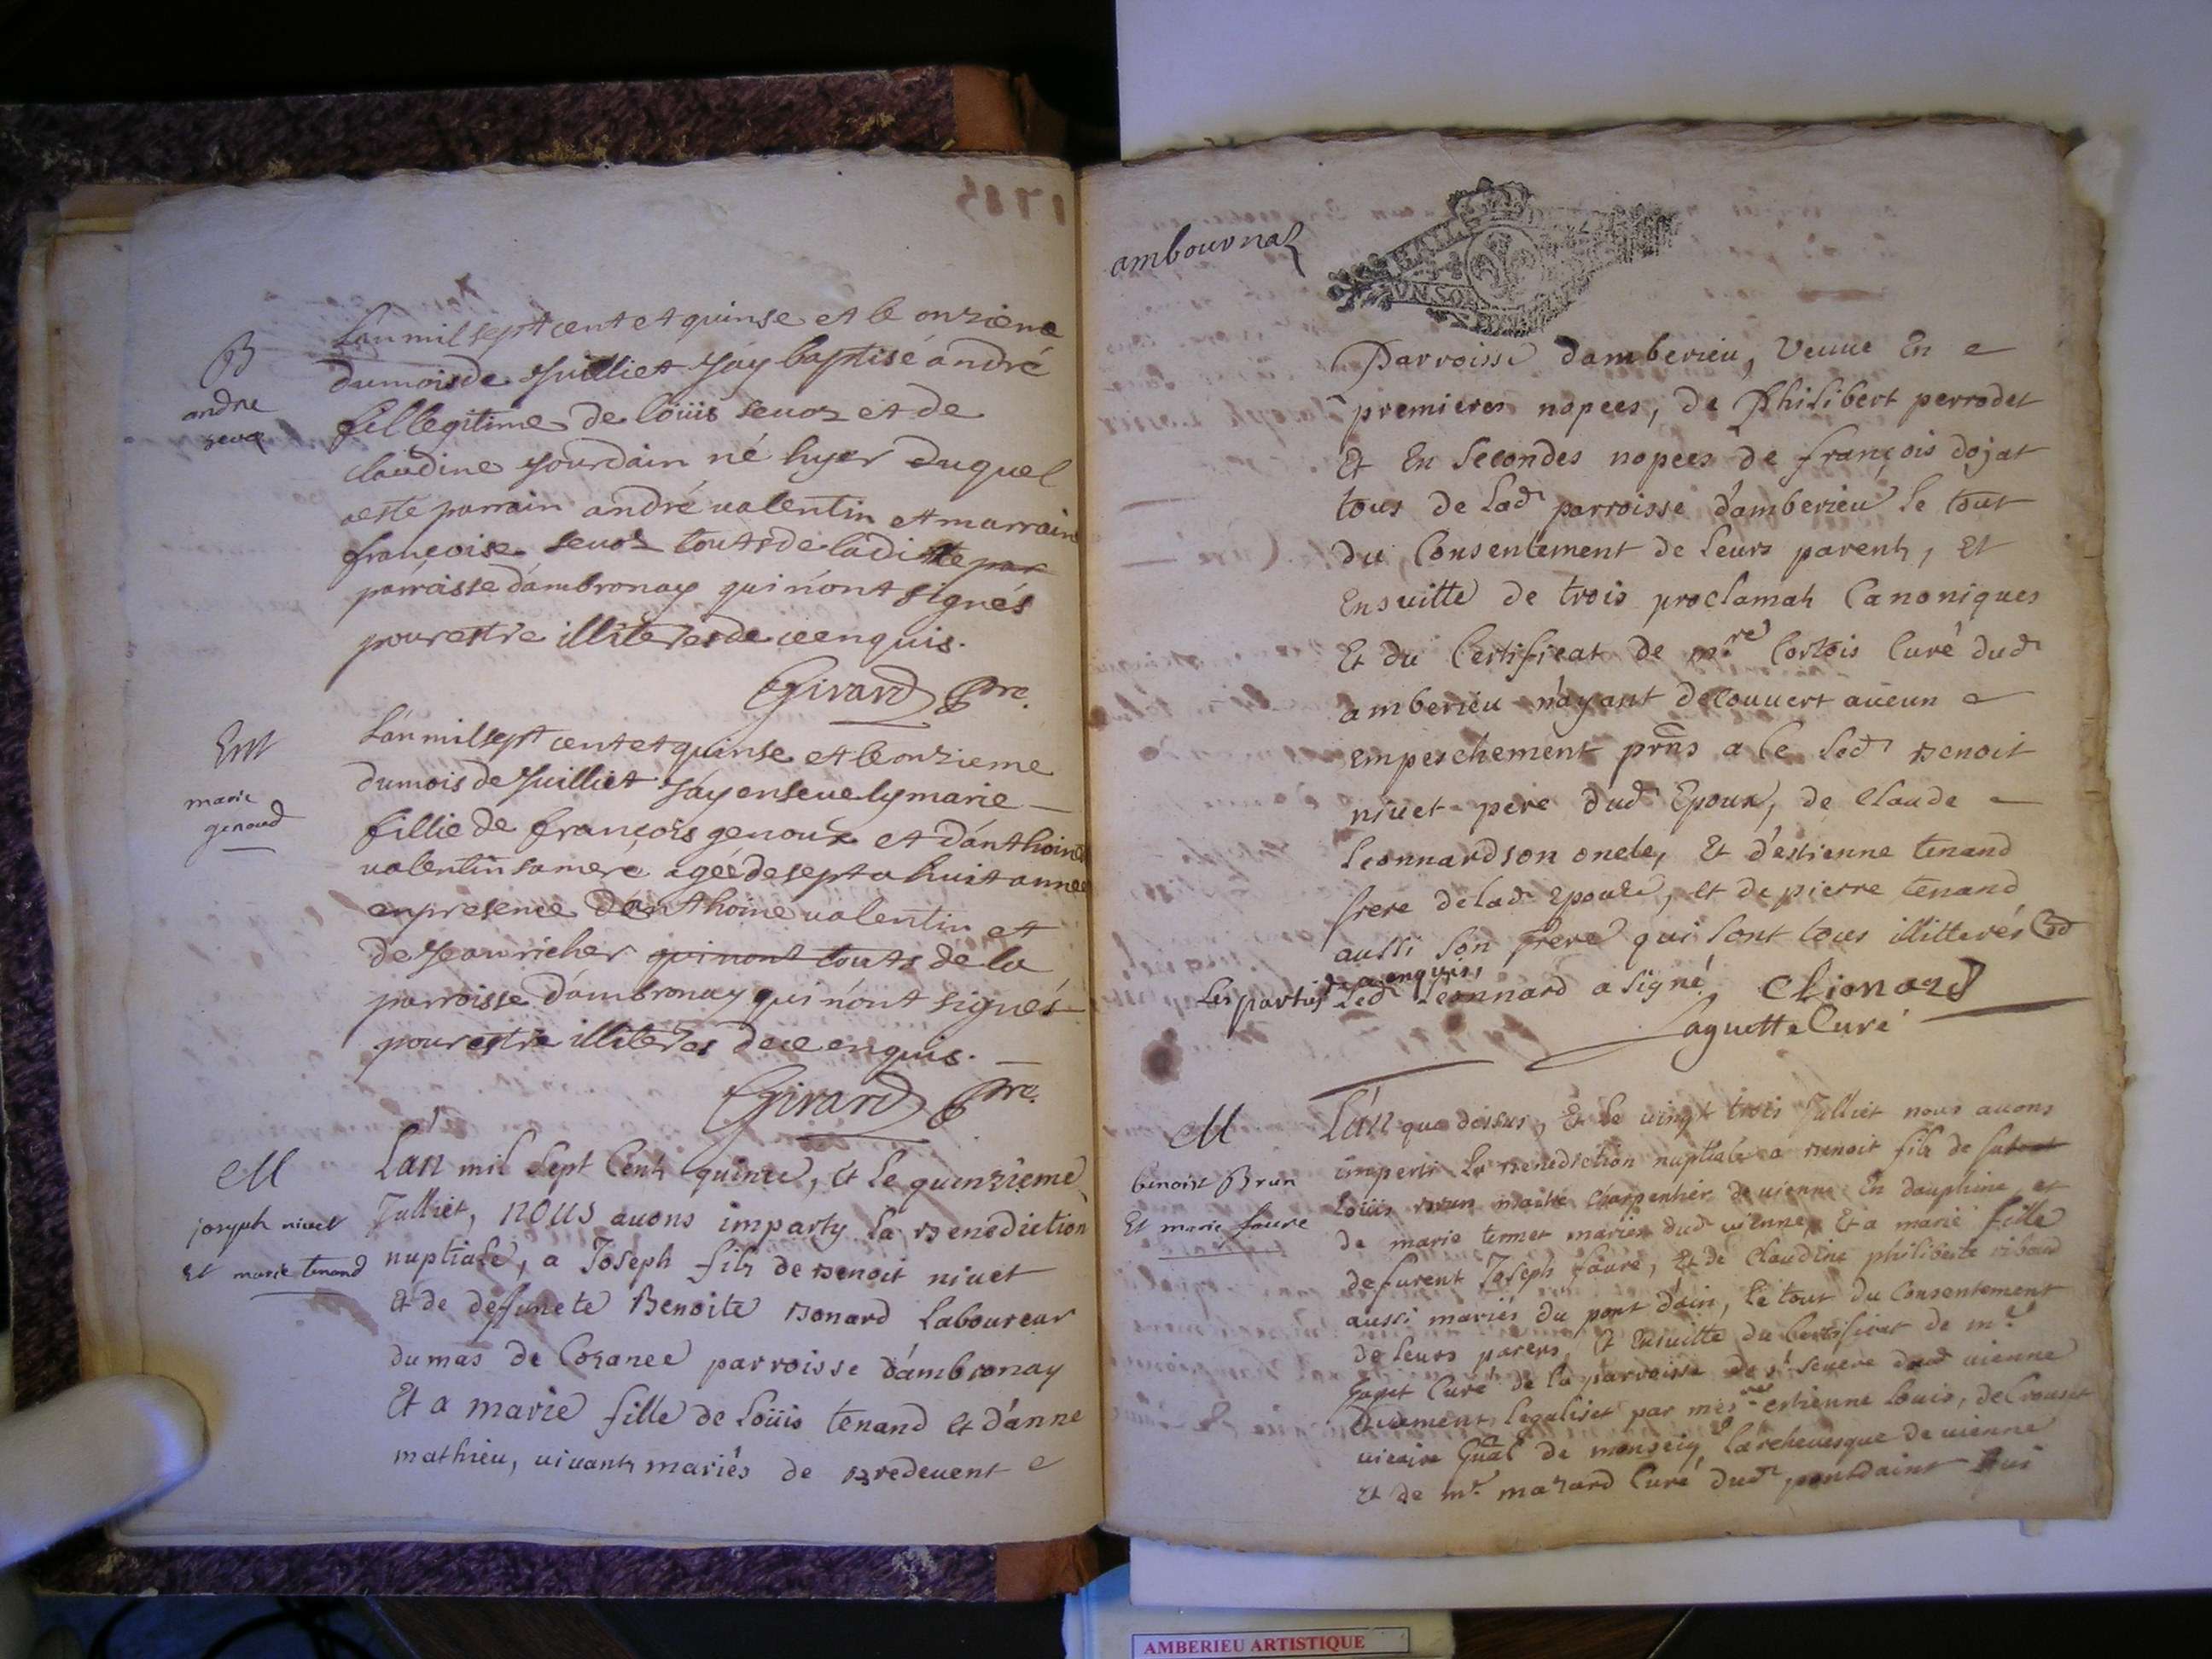 B
andre
sevoz
Lan mil sept cent et quinse et le onzieme
du mois de Juilliet J'ay baptisé andré
fil legitime de loüis sevoz et de
claudine Jourdain né hyer duquel
a esté parrain andré valentin et marraine
françoise sevoz touts de la ditte par
parroisse d'ambronay qui n'ont signés
pour estre illiteres de ce enquis.
Girard Pre.
Ent
marie
genoud
L'an mil sept cent et quinse et le onzieme
du mois de Juilliet J'ay ensevely marie
fillie de françois genoux et d'anthoine
valentin sa mere agée de sept a huit année
en presence d'anthoine valentin et
de Jean richer qui n'ont touts de la
parroisse d'ambronay qui n'ont signés
pour estre illiteres de ce enquis.
Girard Pre.
M
joseph nivet
Et marie tenand
Lan mil Sept Cents quinze, et le quinzieme
Julliet, nous avons imparty la Benediction
nuptiale, a Joseph fils de Benoit nivet
et de deffuncte Benoite Bonard Laboureur
du mas de Cozance parroisse d'ambronay
Et a marie fille de Loüis tenand et d'anne
mathieu, vivants mariés de Bredevent
ambournaz
Parroisse d'amberieu, Veuve En
premieres nopces, de Philibert perrodet
Et En Secondes nopces de françois dojat
tous de Lad. parroisse d'amberieu le tout
du Consentement de Leurs parents, Et
Ensuitte de trois proclamats Canoniques
Et du Certificat de mre Cortois Curé dud
amberieu n'ayant decouvert aucun
Empeschement prñs a ce led Benoit
nivet pere dud Epoux, de Claude
Leonnard son oncle, Et d'estienne tenand
frere de lad Epouse, et de pierre tenand
aussi son frere qui sont tous illitterés
Les parties de ce enquis,
Led Leonnard a signé! CLionard
Laguette Curé
M
benoist Brun
Et marie faure
L'an que dessus, Et le vingt trois Julliet nous avons
imparti la Benediction nuptiale a Benoit fils de
Loüis Brun maitre charpentier de vienne En dauphine et
de marie termet mariés dud vienne, Et a marie fille
de furent Joseph faure, Et de Claudine philiberte ribaud
aussi mariés du pont d'ain, le tout du Consentement
de leurs parens, Et Ensuitte du Certificat de mr
Curé de la parroisse de st severe dud vienne
duëment legaliset par mesre estienne Louis, de
vicaire Gñal de monseigr l'archevesque de vienne
et de mr mazard Curé dud pontdaint
AMBERIEU ARTISTIQUE